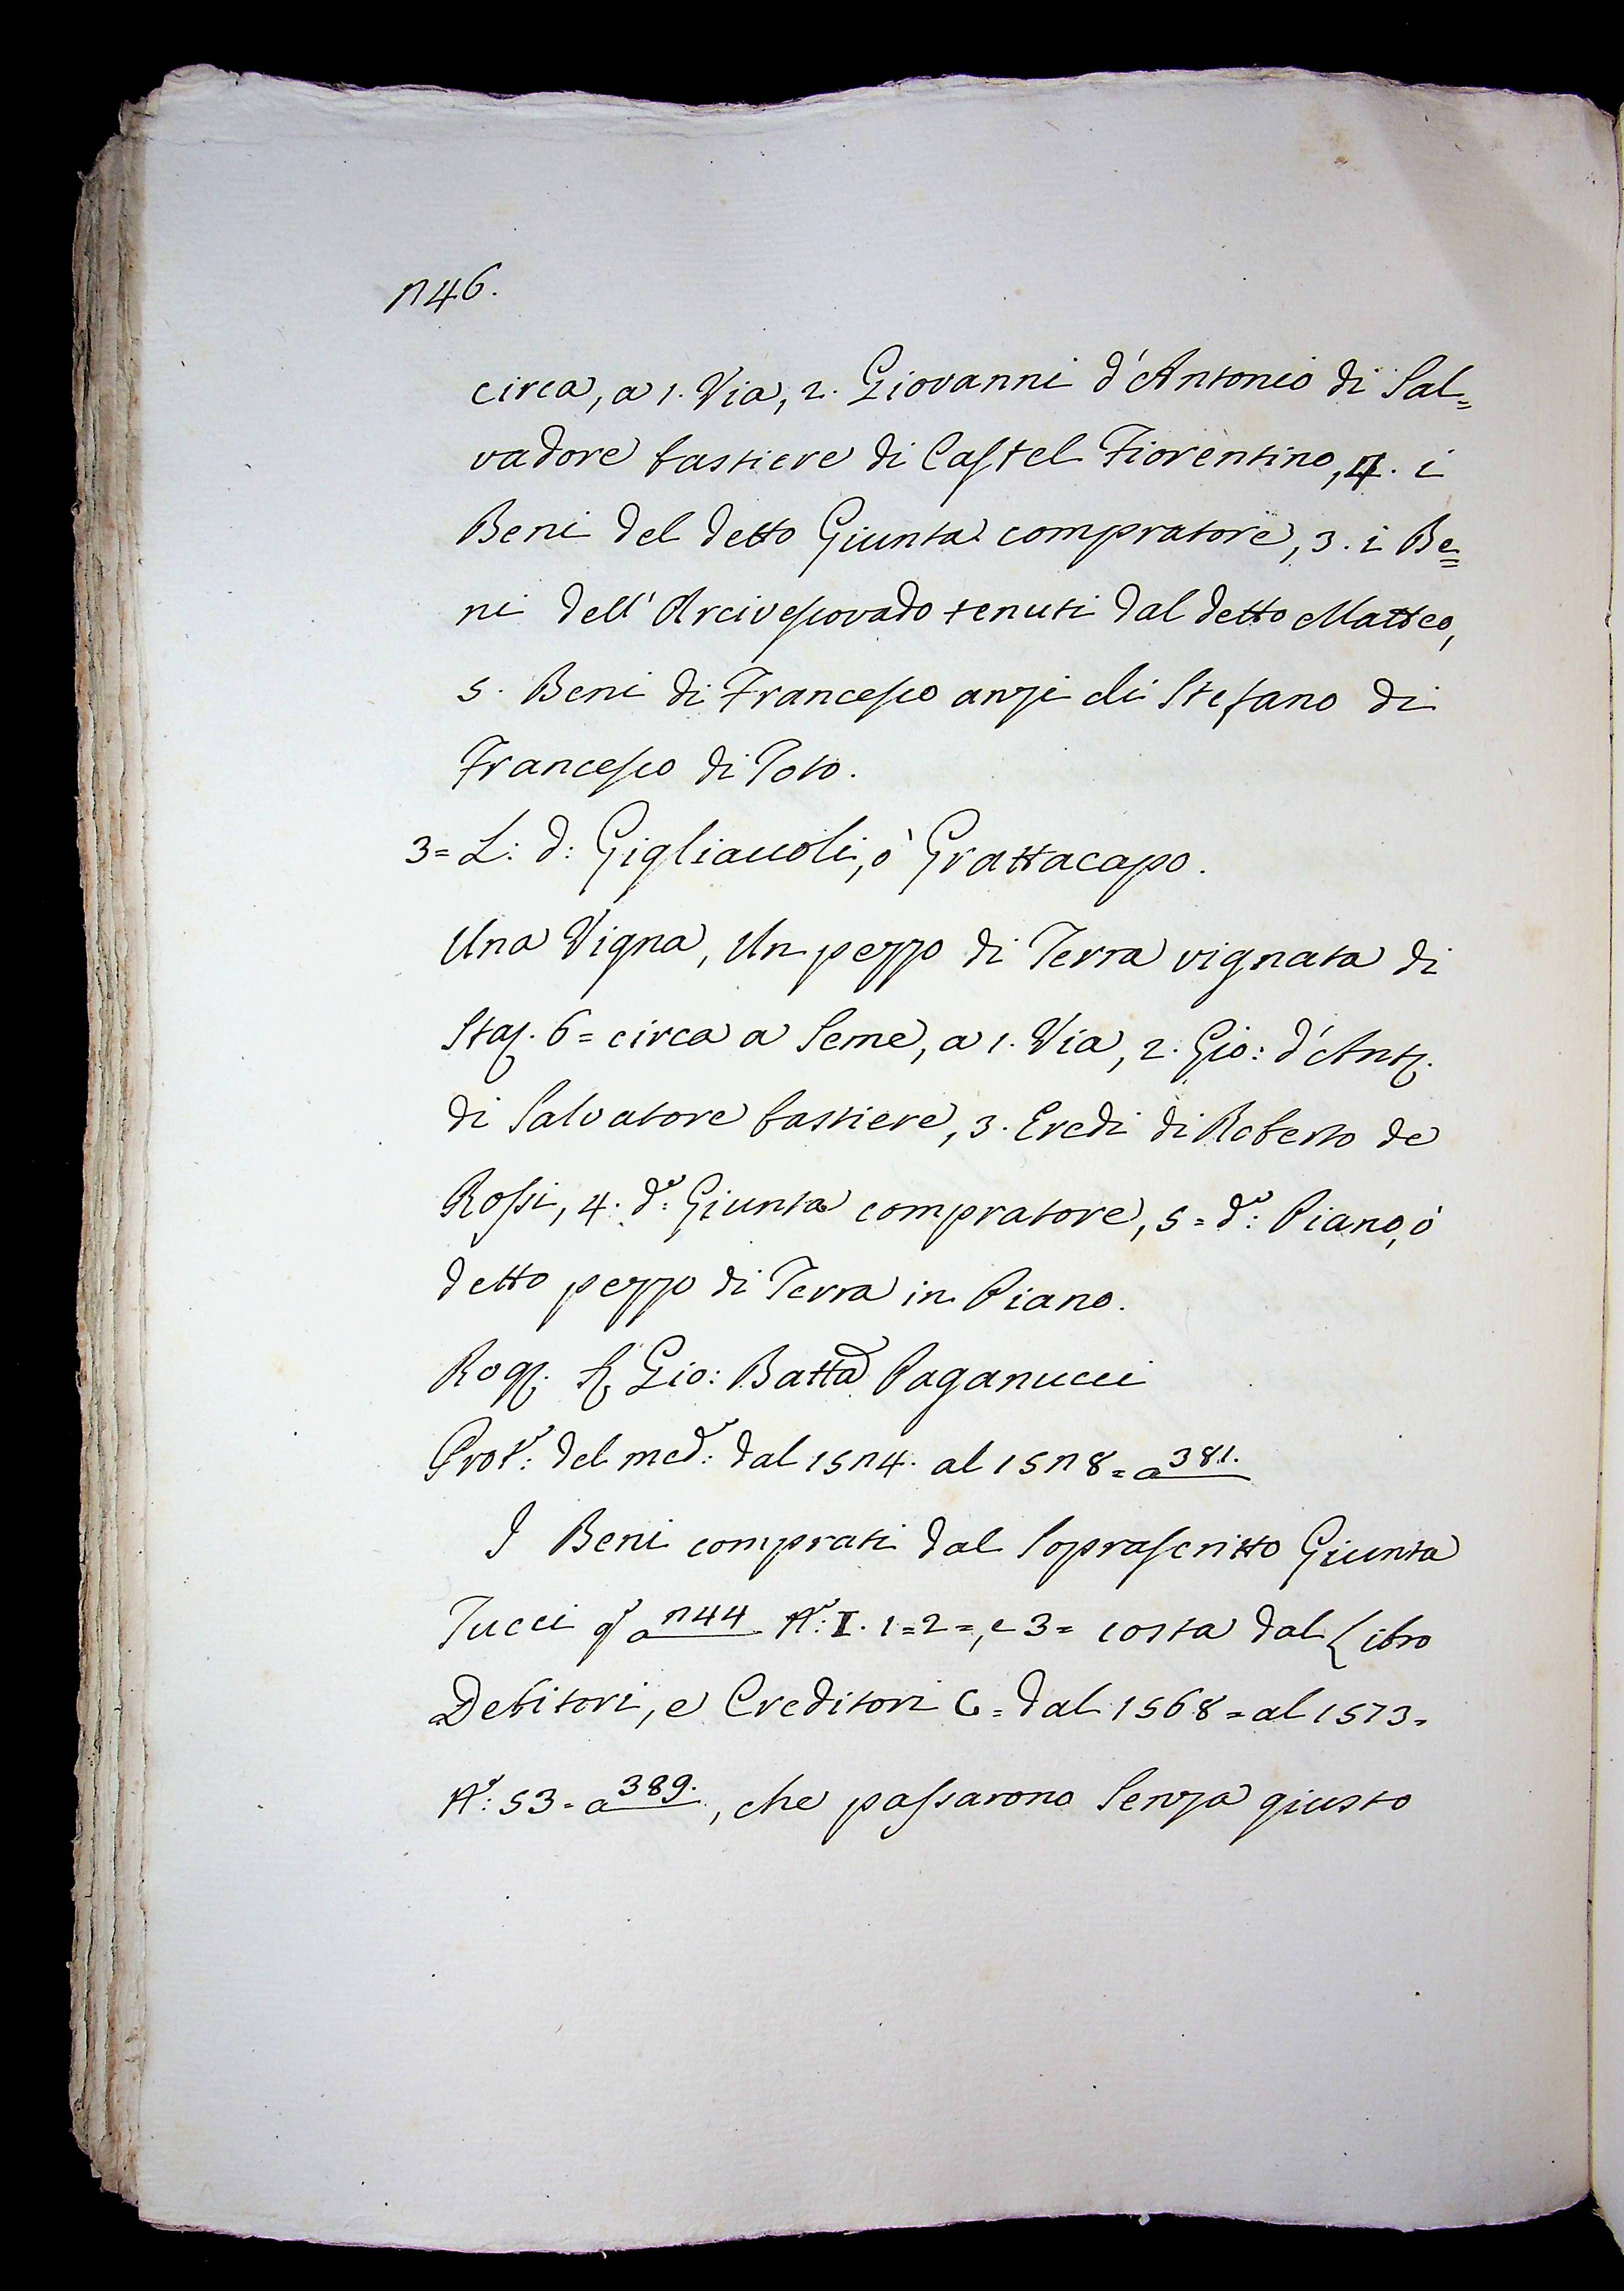 746.
circa, a 1. Via, 2. Giovanni d'Antonio di Sal=
vadore bastiere di Castel Fiorentino, 4. i
Beni del detto Giunta compratore, 3. i Be=
ni dell'Arcivescovado tenuti dal detto Matteo,
5. Beni di Francesco anzi di Stefano di
Francesco di Poto.
3= L: d: Gigliaccoli, ò Grattacapo.
Una Vigna, Un pezzo di Terra vignata di
Sta. 6= circa a Seme, a 1. Via, 2. Gio: d'Ant.
di Salvatore bastiere, 3. Eredi di Roberto de
Rossi, 4. d.º: Giunta compratore, 5= d.º: Piano, ò
detto pezzo di Terra in Piano.
Rog. S. Gio: Batta Paganucci
Prot.º: del med.º: dal 1574. al 1578= a 381.
I Beni comprati dal Soprascritto Giunta
Tucci q.º a 744 N.º: I. 1=2=, e 3= costa dal Libro
Debitori, e Creditori C= dal 1568= al 1573=
N.º: 53= a 389., che passarono Senza giusto